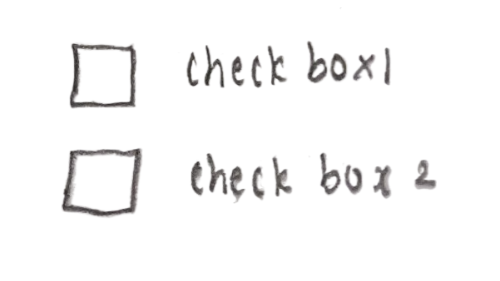 check box1
check box 2